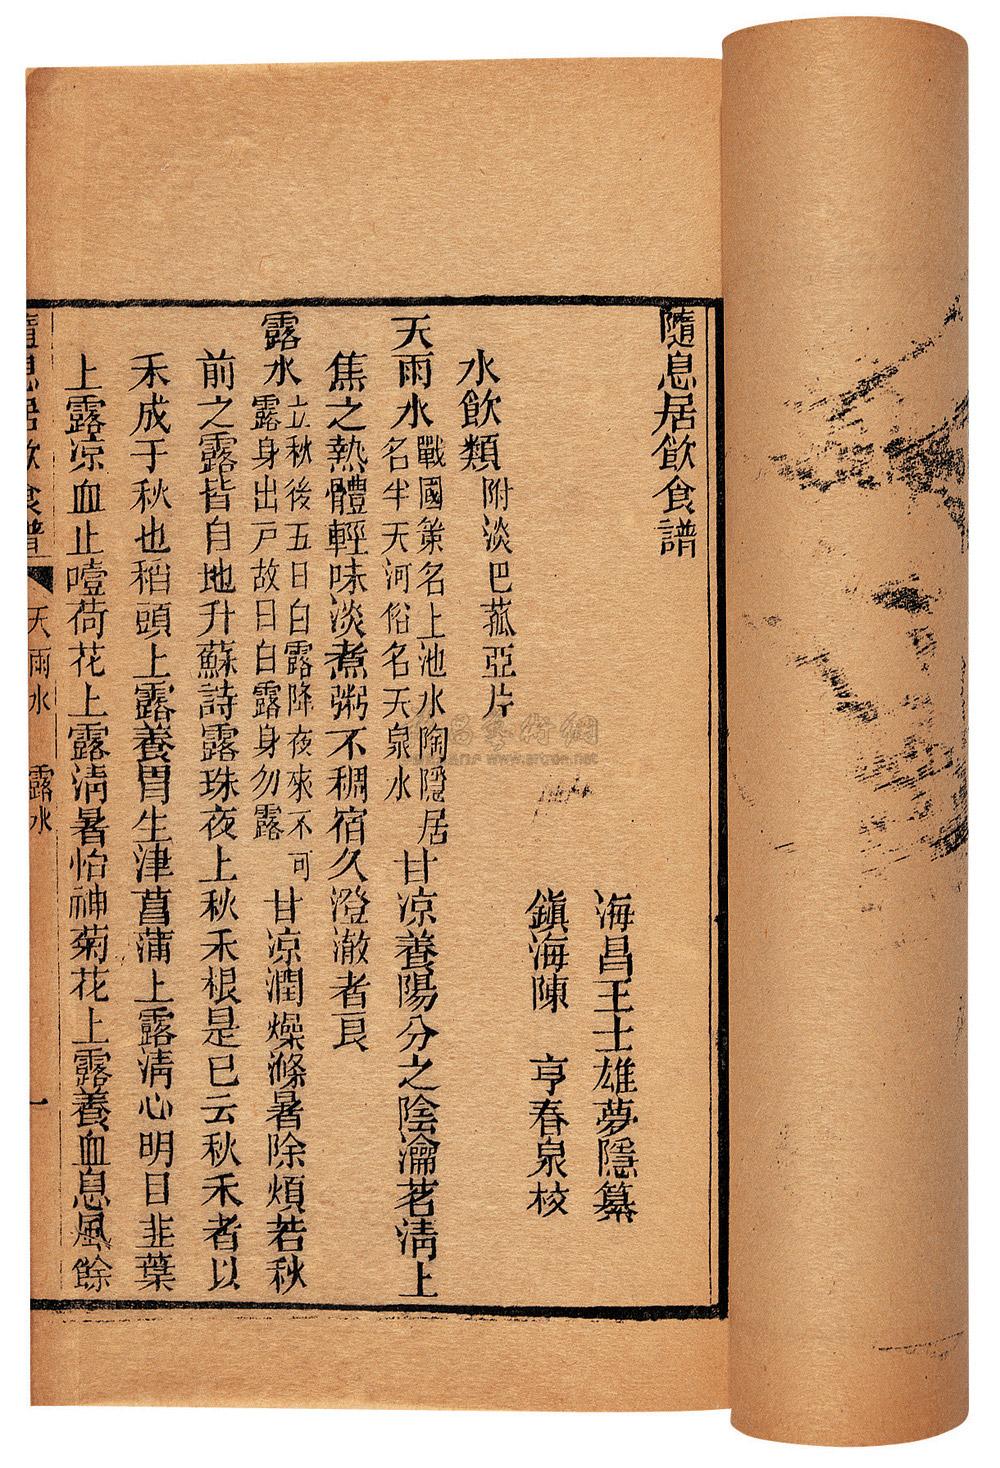 隨息居飲食譜
海昌王士雄夢隱纂
鎭海陳　亨春泉校
水飲類 附淡巴菰亞片
天雨水 戰國策名上池水陶隱居名半天河俗名天泉水 甘凉養陽分之陰瀹茗淸上
焦之熱體輕味淡煮粥不稠宿久澄澈者良
露水 立秋後五日白露降夜來不可露身出戸故曰白露身勿露 甘凉潤燥滌暑除煩若秋
前之露皆自地升蘇詩露珠夜上秋禾根是已云秋禾者以
禾成于秋也稻頭上露養胃生津菖蒲上露淸心明目韭葉
上露凉血止噎荷花上露淸暑怡神菊花上露養血息風餘
隨息居飲食譜 天雨水 露水 一